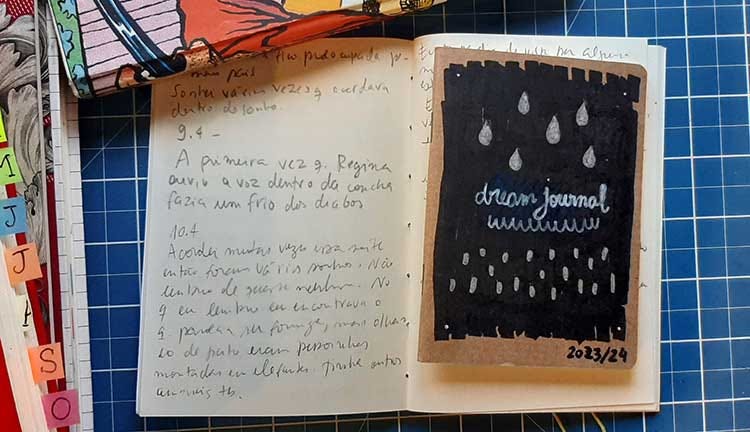 preocupada p-
meus pais
Sonhei várias vezes q acordava
dentro do sonho.
9.4 -
A primeira vez q. Regina
ouviu a voz dentro da concha
fazia um frio dos diabos
10.4
Acordei muitas vezes essa noite
então foram vários sonhos. Não
lembro de quase nenhum. No
q eu lembro eu encontrava o
q parecia ser formigas, mas olhan-
do de perto eram pessoinhas
montadas em elefantes. Tinha outros
animais tb.
dream journal
2023/24
M
J
J
A
S
O